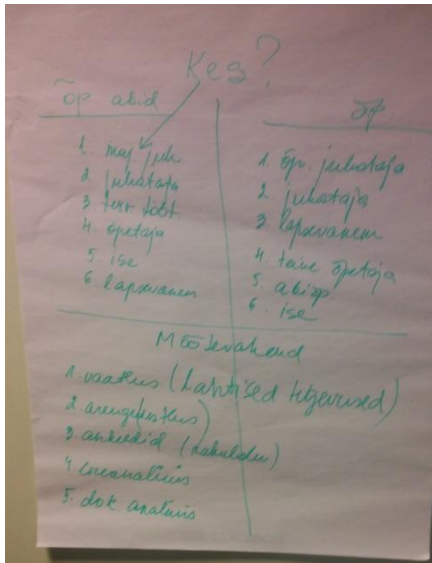 Kes?
õp abid
1. maj. juh
2 juhataja
3. terv tööt.
4. õpetaja
5. ise
6. lapsevanem
Õp.
1. õp. juhataja
2. juhataja
3. lapsevanem
4. teine õpetaja
5. abiõp.
6. ise
Mõõtevahend
1. vaatlus (lahtised tegevused)
2 arenguvestlus
3. ankeedid (rahulolu)
4
5. dok. analüüs